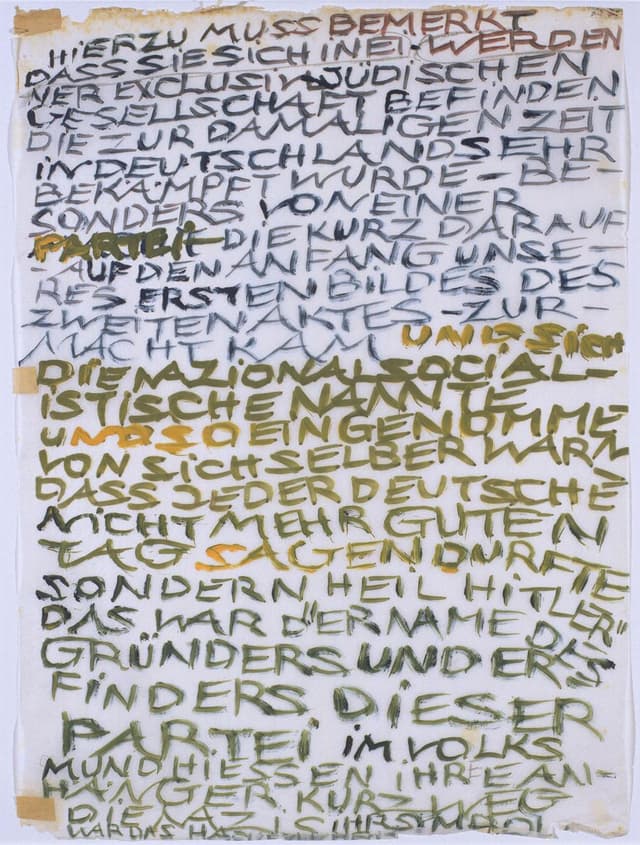 HIERZU MUSS BEMERKT
WERDEN
DASS SIE SICH IN EI-
NER EXCLUSIV JÜDISCHEN
GESELLSCHAFT BEFINDEN
DIE ZUR DAMALIGEN ZEIT
IN DEUTSCHLAND SEHR
BEKÄMPFT WURDE - BE-
SONDERS VON EINER
PARTEI DIE KURZ DARAUF
- AUF DEN ANFANG UNSE-
RES ERSTEN BILDES DES
ZWEITEN AKTES - ZUR -
MACHT KAM UND SICH
DIE NAZIONALSOCIAL-
ISTISCHE NANNTE
UND SO EINGENOMME
VON SICH SELBER WARN
DASS JEDER DEUTSCHE
NICHT MEHR GUTEN
TAG SAGEN DURFTE
SONDERN HEIL HITLER"
DAS WAR DER NAME DES
GRÜNDERS UND ER-
FINDERS DIESER
PARTEI IM VOLKS
MUND HIESSEN IHRE AN-
HÄNGER KURZWEG
DIE NAZIS IHR SYMBOL
WAR DAS